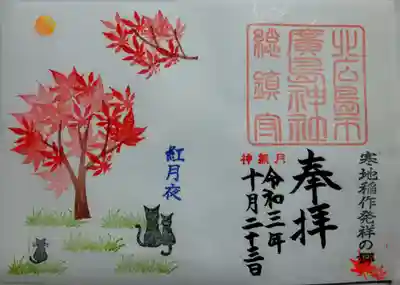 寒地稲作発祥の郷
北広島市
廣島神社
総鎮守
奉拝
神無月
令和三年
十月二十三日
紅月夜